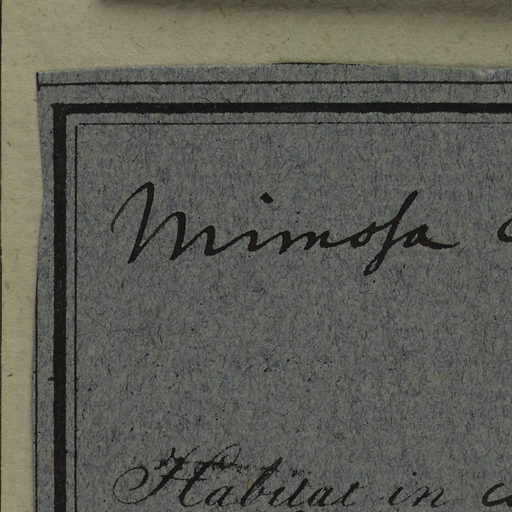 Mimosa
Habitat in